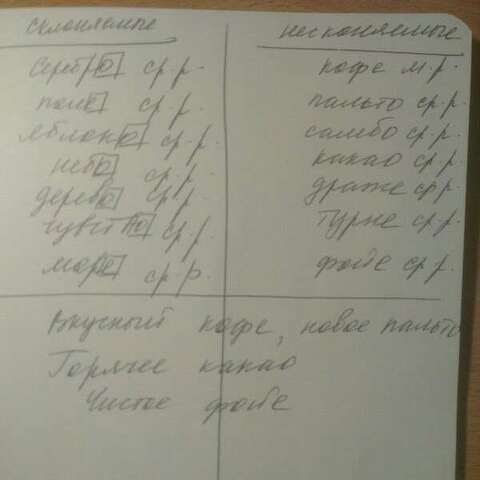 склоняемые
несклоняемые
серебро ср.р.
кофе м.р.
поле ср.р.
пальто ср.р.
яблоко ср.р.
самбо ср.р.
небо ср.р.
какао ср.р.
дерево ср.р.
драже ср.р.
чувство ср.р.
турне ср.р.
море ср.р.
фойе ср.р.
Вкусный кофе, новое пальто
Горячее какао
Чистое фойе